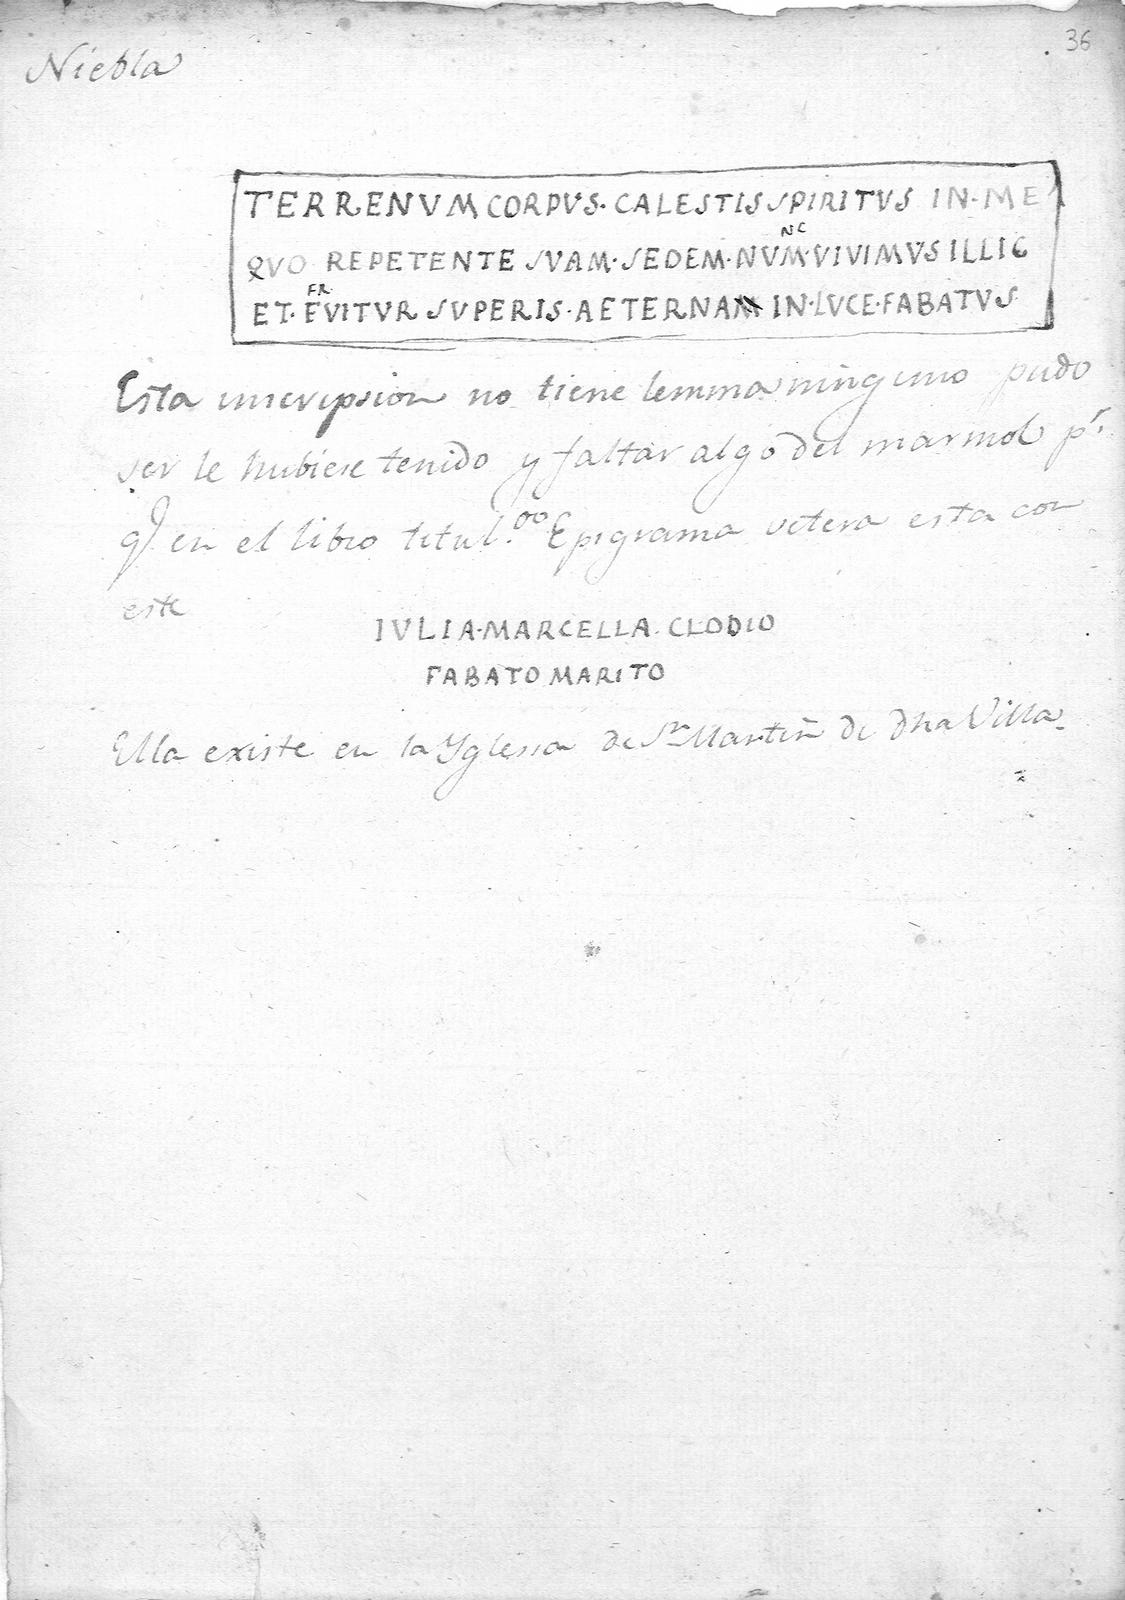 36
Niebla
TERRENVM CORPVS. CALESTIS SPIRITVS IN. ME
NC
QVO REPETENTE SVAM. SEDEM. NVM. VIVIMVS ILLIC
FR
ET. EVITVR SUPERIS. AETERNAM IN. LUCE. FABATVS
Esta inscripsion no tiene lemma ninguno pudo
ser le hubiese tenido y faltar algo del marmol pr.
q en el libro titul.oo Epigrama vetera esta con
este
IVLIA. MARCELLA. CLODIO
FABATO MARITO
Ella existe en la Yglesia de Sn Martin de dha Villa.